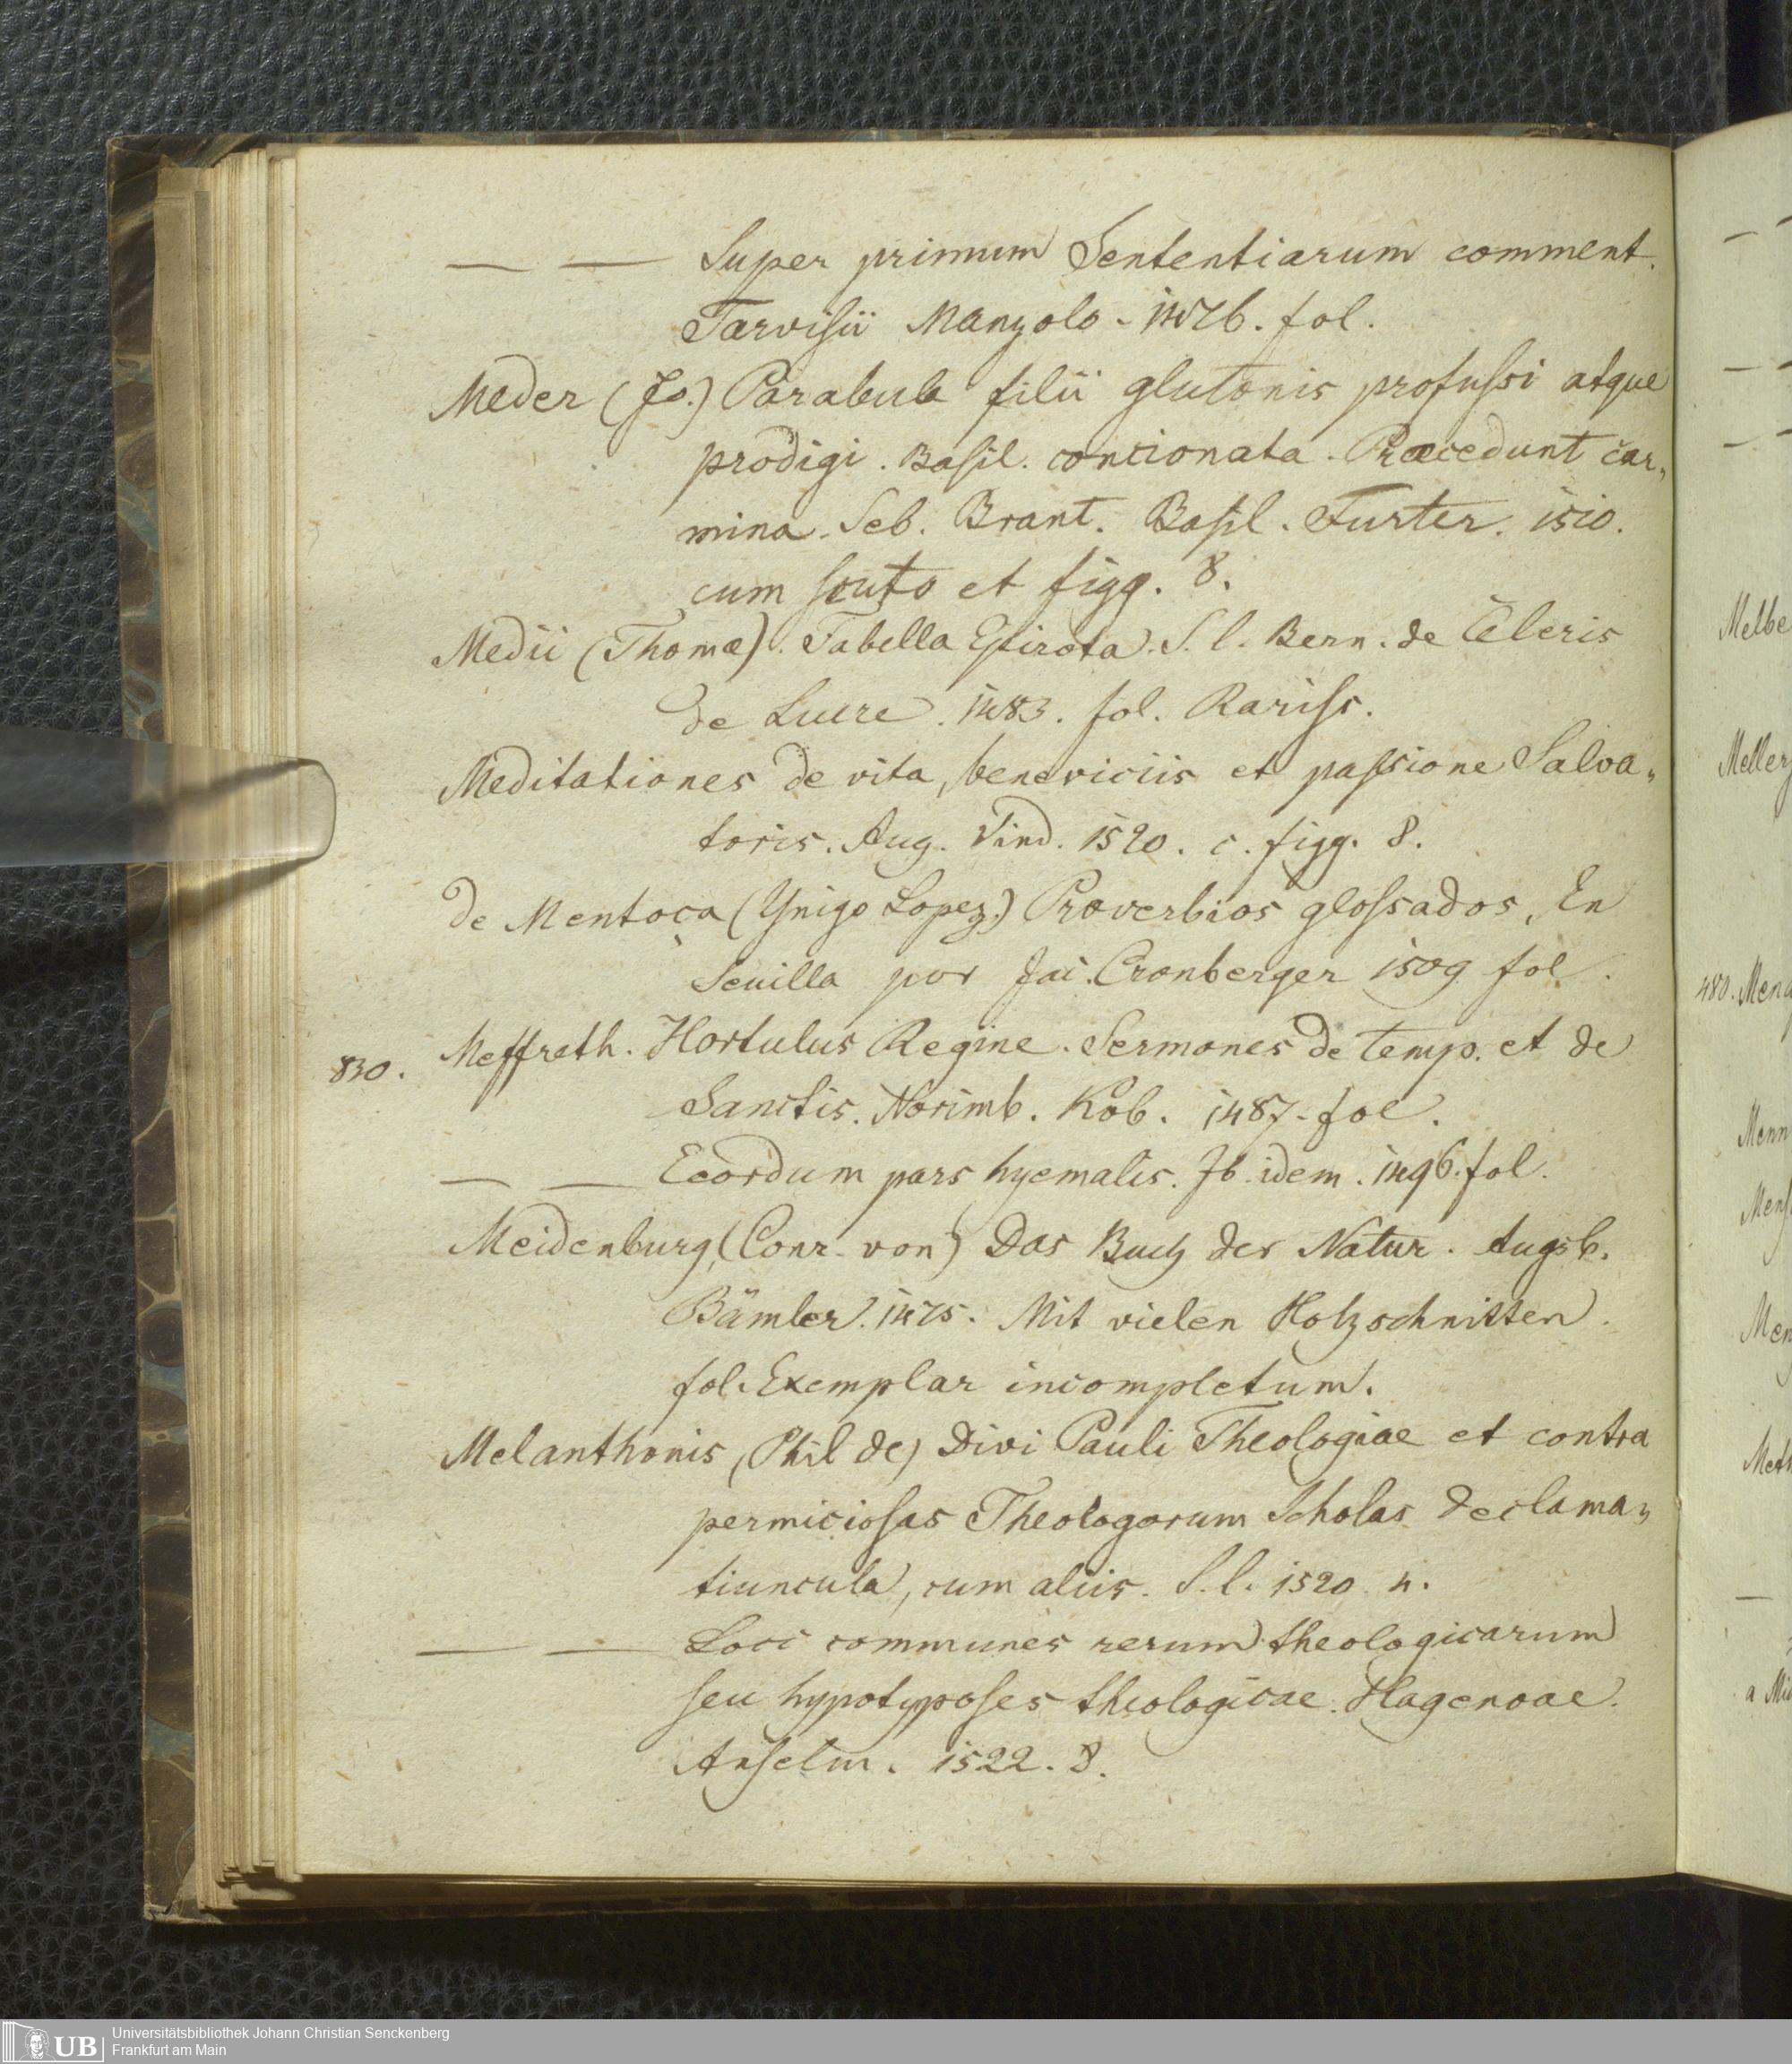 — — Super primum Sententiarum comment.
Tarvisii Manzolo - 1476. fol.
Meder (Jo.) Parabula filii glutonis profussi atque
prodigi. Basil. concionata. Præcedunt car„
mina Seb. Brant. Basil. Furter. 1510.
cum scuto et figg. 8.
Medii (Thomæ). Fabella Epirota. S. l. Bern. de Celeris
de Luere. 1483. fol. Rariss.
Meditationes de vita, beneviciis et passione Salva„
toris. Aug. Vind. 1520. c. figg. 8.
de Mentoça (Ynigo Lopez.) Proverbios glossados, En
Seuilla por Jac. Cronberger 1509 fol.
830. Meffreth. Hortulus Regine. Sermones de Temp. et de
Sanctis. Norimb. Kob. 1487. fol.
— — Eeordum pars hyemalis. Ib. idem. 1496. fol.
Meidenburg, (Conr. von) Das Buch der Natur. Augsb.
Bämler. 1475. Mit vielen Holzschnitten.
fol. Exemplar incompletum.
Melanthonis, (Phil de) Divi Pauli Theologiae et contra
permiciosas Theologorum Scholas declama„
tiuncula, cum aliis. S. l. 1520. 4.
— — Loci communes rerum theologicarum
seu hypotyposes theologicae. Hagenoae.
Anselm. 1522. 8.
Melbe
Meller
480. Mena
Menn
Mens
Men
Meth
a Mi
UB
Universitätsbibliothek Johann Christian Senckenberg
Frankfurt am Main